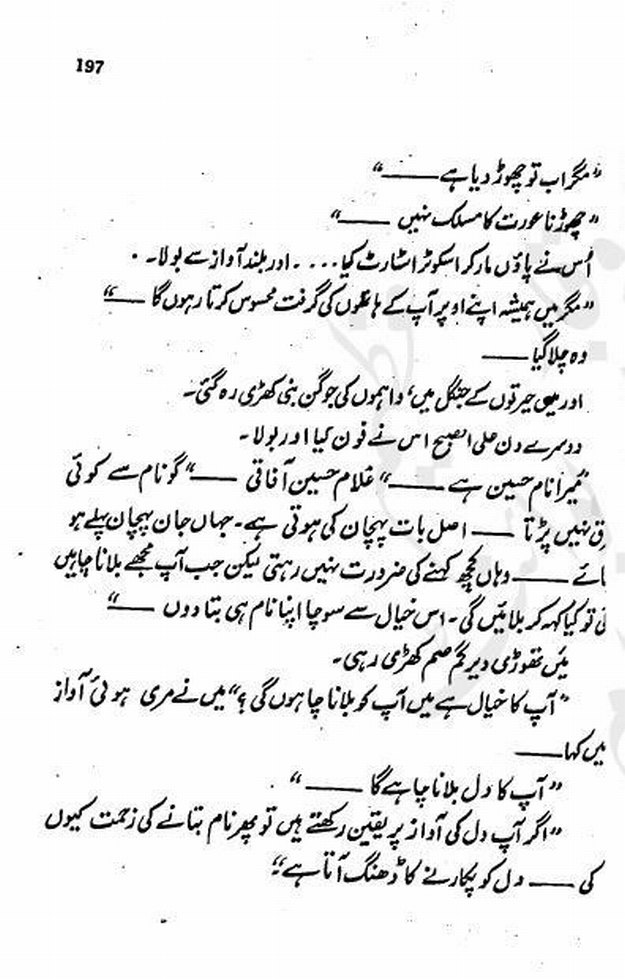 197
"مگر اب تو چھوڑ دیا ہے ——"
"چھوڑنا عورت کا مسلک نہیں ——"
اُس نے پاؤں مار کر اسکوٹر اسٹارٹ کیا.... اور بلند آواز سے بولا۔
"مگر میں ہمیشہ اپنے اوپر آپ کے ہاتھوں کی گرفت محسوس کرتا رہوں گا ——"
وہ چلا گیا ——
اور میں حیرتوں کے جنگل میں، واہموں کی جوگن بنی کھڑی رہ گئی۔
دوسرے دن علی الصبح اس نے فون کیا اور بولا۔
"میرا نام حسین ہے —— "غلام حسین آفاقی —— "گو نام سے کوئی
رق نہیں پڑتا —— اصل بات پہچان کی ہوتی ہے۔ جہاں جان پہچان پہلے ہو
ائے —— وہاں کچھ کہنے کی ضرورت نہیں رہتی لیکن جب آپ مجھے بلانا چاہیں
ئی تو کیا کہہ کر بلائیں گی۔ اس خیال سے سوچا اپنا نام ہی بتا دوں ——"
میں تھوڑی دیر گم صم کھڑی رہی۔
"آپ کا خیال ہے میں آپ کو بلانا چاہوں گی؟" میں نے مری ہوئی آواز
میں کہا ——
"آپ کا دل بلانا چاہے گا ——"
"اگر آپ دل کی آواز پر یقین رکھتے ہیں تو پھر نام بتانے کی زحمت کیوں
کی —— دل کو پکارنے کا ڈھنگ آتا ہے"